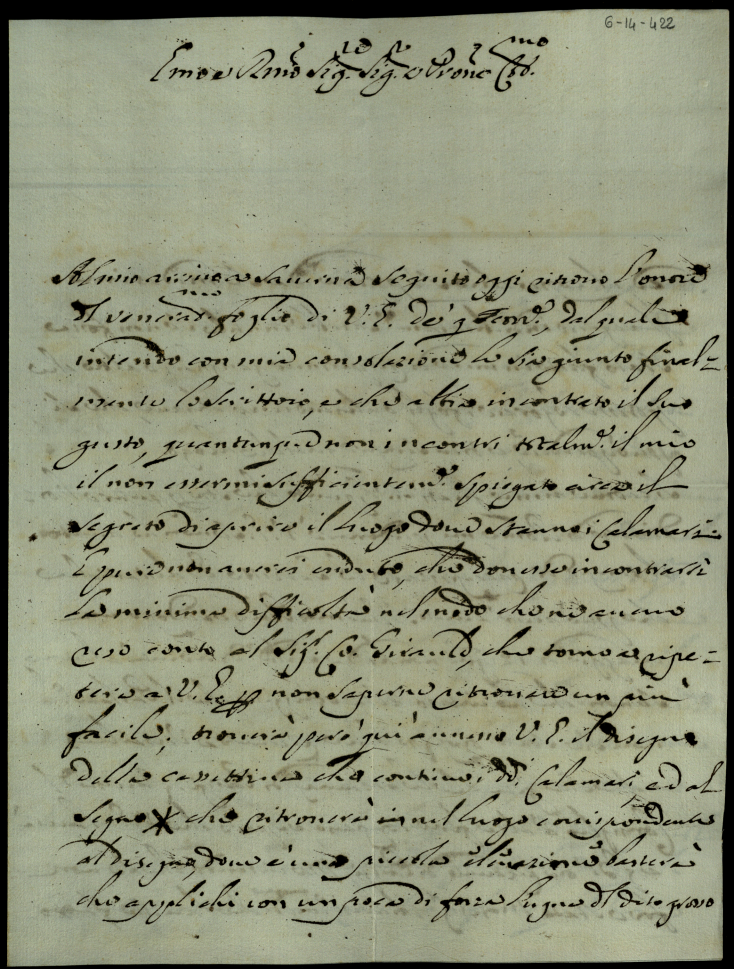 6-14-422
Emo e Rmo Sig.r Sig.r e Prone Col.mo
Al mio arrivo a seguito oggi ritrovo l'onore
del venerat.mo foglio di V. E. de' 9 Feb.o, dal quale
intendo con mia consolazione che sia giunto final=
mente lo scrittoio, e che abbia incontrato il suo
gusto, quantunque non incontri totalm.e il mio
il non essermi sufficientem.e spiegato circa il
segreto di aprire il luogo dove stanno i Calamari.
Eppure non averei creduto, che dovesse incontrarsi
la minima difficoltà nel modo che ne aveva
reso conto al Sig.r Co. Girauld, che torno a ripe=
tere a V. E. p non saperne ritrovare un più
facile; troverà però quì annesso V. E. il disegno
della cassettina che contiene i dd.i Calamari, ed al
segno X che ritroverà in nel luogo corrispondente
al disegno, dove è una piccola elevazione basterà
che applichi con un poca di forza l'ugna del dito grosso